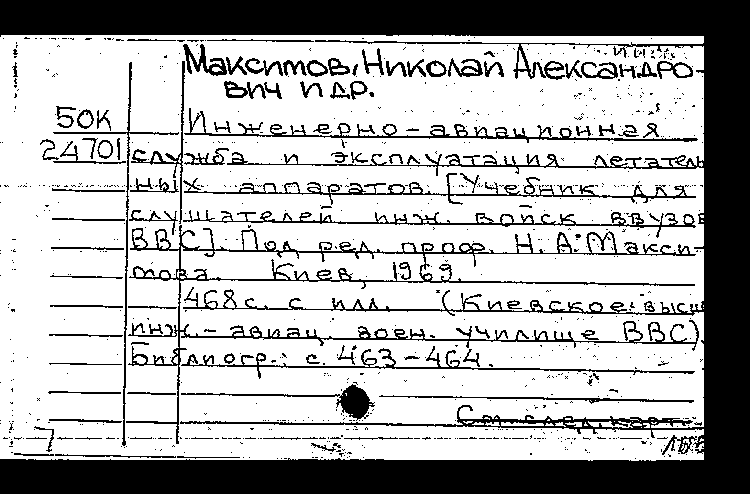 Максимов, Николай Александро-
вич и др.
50К
24701
Инженерно-авиационная
служба и эксплуатация летатель
ных аппаратов. [Учебник для
слушателей инж. войск ВВУЗов
ВВС]. Под ред. проф. Н. А. Макси-
мова. Киев, 1969.
468 с. с илл. (Киевское высш
инж.-авиац. воен. училище ВВС).
Библиогр.: с. 463-464.
См. след. карт.